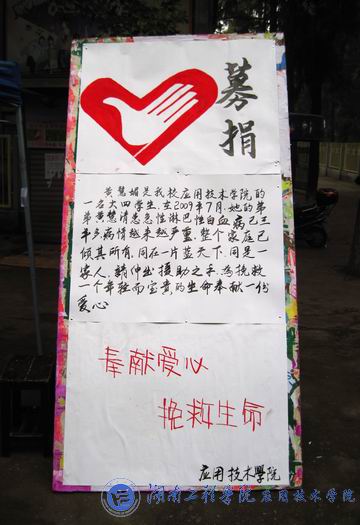 募捐
黄慧媚是我校应用技术学院的
一名大四学生,在2009年7月,她的弟
弟黄慧清患急性淋巴性白血病已三
年多,病情越来越严重,整个家庭已
倾其所有,同在一片蓝天下,同是一
家人,请伸出援助之手,为挽救
一个年轻而宝贵的生命奉献一份
爱心
奉献爱心
挽救生命
应用技术學院
湖南工程学院应用技术学院